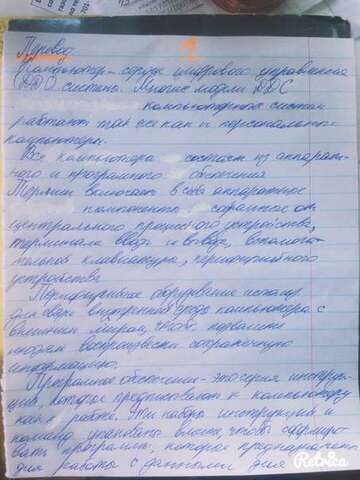 1
Перевод.
Компьютер – сердце цифрового управления
(DDC) система. Многие модели DDC
компьютерных систем
работают так же как и персональные
компьютеры.
Все компьютеры состоят из аппарат-
ного и программного обеспечения
Термин включает в себя аппаратные
компоненты
центрального процесного устройства,
терминала ввода и вывода, вспомога-
тельной клавиатуры, периферийного
устройства.
Периферийное оборудование
для связи внутренней среды компьютера с
внешним миром, чтоб позволить
людям воспроизвести сохранённую
информацию.
Программное обеспечение – это серия инструк-
ций, которые предписывают компьютеру
как работать. Эти наборы инструкций и
команд упакованы вместе, чтоб сформиро-
вать программы, которые предназначены
для работы с данными для
Retrica